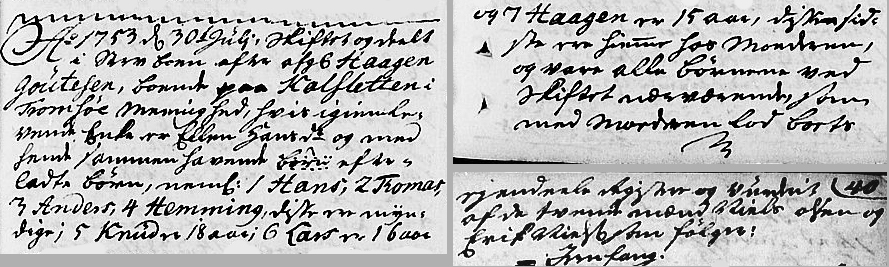 Ao 1753 d 30t Julj, Skiftet og deelt
i Sterboen efter afg6 Haagen
Goutesen, boende paa Kalsletten i
Tromsøe Menighed, hvis igienle-
vende Enke er Ellen Hansdr og med
hende sammen havende børn efter-
ladte børn, neml: 1 Hans, 2 Tromas,
3 Anders, 4 Hemming, disse ere myn-
dige; 5 Knud er 18 aar; 6 Lars er 16 aar
og 7 Haagen er 15 aar, disse sid-
ste ere hiemme hos Moderen,
og vare alle børnene ved
Skiftet nærværende, som
med Moderen lod bort
ejendeele Registere og vurderet 40
af de tvende mænd Niels Olsen og
Erik Nielssen følger: